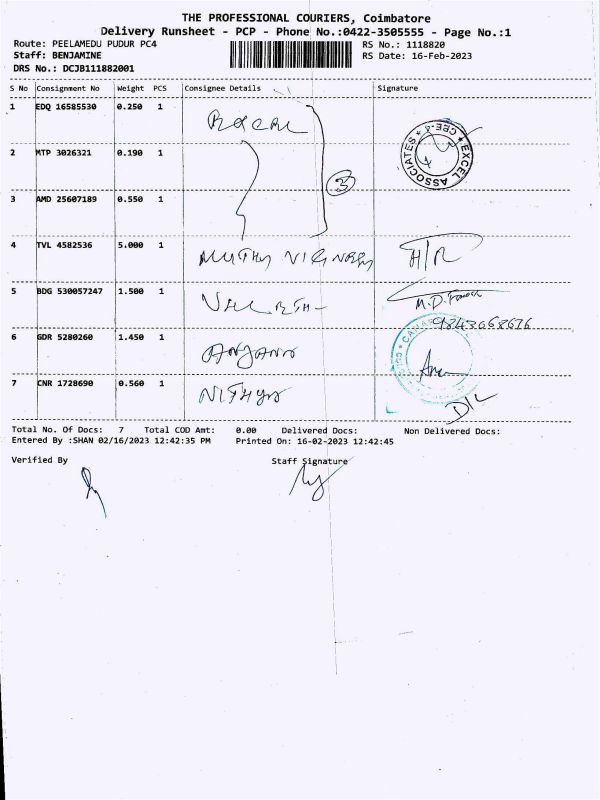 THE PROFESSIONAL COURIERS, Coimbatore
Delivery Runsheet - PCP - Phone No.:0422-3505555 - Page No.:1
Route: PEELAMEDU PUDUR PC4 RS No.: 1118820
Staff: BENJAMINE RS Date: 16-Feb-2023
DRS No.: DCJB111882001
S No Consignment No Weight PCS Consignee Details Signature
1 EDQ 16585530 0.250 1
EXCEL ASSOCIATES CBE-4
2 MTP 3026321 0.190 1
3
3 AMD 25607189 0.550 1
4 TVL 4582536 5.000 1 MUTHU H/R
5 BDG 530057247 1.500 1 M.D.
9843068676
6 GDR 5280260 1.450 1
7 CNR 1728690 0.560 1 NITHYA D/L
Total No. Of Docs: 7 Total COD Amt: 0.00 Delivered Docs: Non Delivered Docs:
Entered By :SHAN 02/16/2023 12:42:35 PM Printed On: 16-02-2023 12:42:45
Verified By Staff Signature